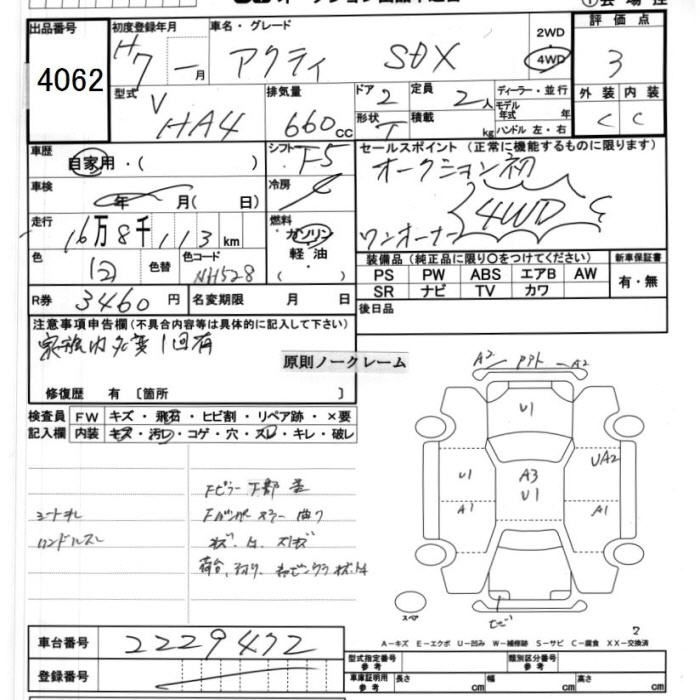 出品番号
4062
初度登録年月
H7 — 月
車名・グレード
アクティ SDX
2WD
4WD
評価点
3
型式
V HA4
排気量
660 CC
ドア 2
形状 T
定員 2人
積載 kg
ディーラー・並行
モデル年式 年
ハンドル 左・右
外装 内装
C C
車歴
自家用・( )
シフト F5
セールスポイント（正常に機能するものに限ります）
オークション初
4WD
ワンオーナー
車検
年 月( 日)
冷房
走行
16万8千113km
燃料
ガソリン
軽油
・( )
色
白
色替
色コード
NH528
装備品（純正品に限り〇をつけてください）
PS PW ABS エアB AW
SR ナビ TV カワ
新車保証書
有・無
R券 3460円
名変期限 月 日
後日品
注意事項申告欄（不具合内容等は具体的に記入して下さい）
家族内名変1回有
原則ノークレーム
修復歴 有〔箇所 〕
検査員記入欄
FW キズ・飛石・ヒビ割・リペア跡・×要
内装 キズ・汚レ・コゲ・穴・スレ・キレ・破レ
シートオレ
ハンドルスレ
Fピラー下部
曲り
荷台
A2 A2
U1
U1 A3 U1 UA2
A1 A1
スペア
車台番号 2229472
登録番号
A－キズ E－エクボ U－凹み W－補修跡 S－サビ C－腐食 XX－交換済
型式指定番号 参考
類別区分番号 参考
車庫証明用 参考
長さ cm 幅 cm 高さ cm